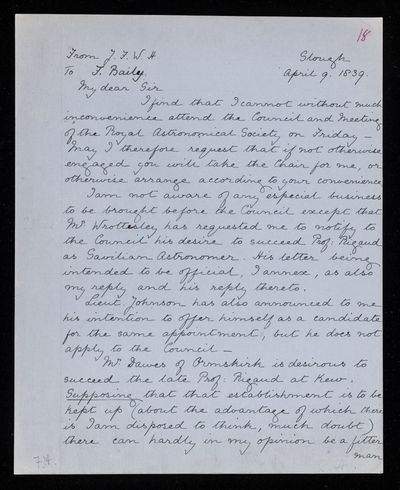 18
From J. F. W. H.
Slough
To F. Baily.
April 9. 1839.
My dear Sir
I find that I cannot without much
inconvenience attend the Council and Meeting
of the Royal Astronomical Society on Friday —
May I therefore request that if not otherwise
engaged you will take the Chair for me, or
otherwise arrange according to your convenience
I am not aware of any especial business
to be brought before the Council except that
Mr Wrottesley has requested me to notify to
the Council his desire to succeed Prof: Rigaud
as Savilian Astronomer. His letter being
intended to be official, I annex, as also
my reply and his reply thereto.
Lieut Johnson has also announced to me
his intention to offer himself as a candidate
for the same appointment, but he does not
apply to the Council —
Mr Dawes of Ormskirk is desirous to
succeed the late Prof: Rigaud at Kew.
Supposing that that establishment is to be
kept up (about the advantage of which there
is I am disposed to think, much doubt)
there can hardly in my opinion be a fitter
man